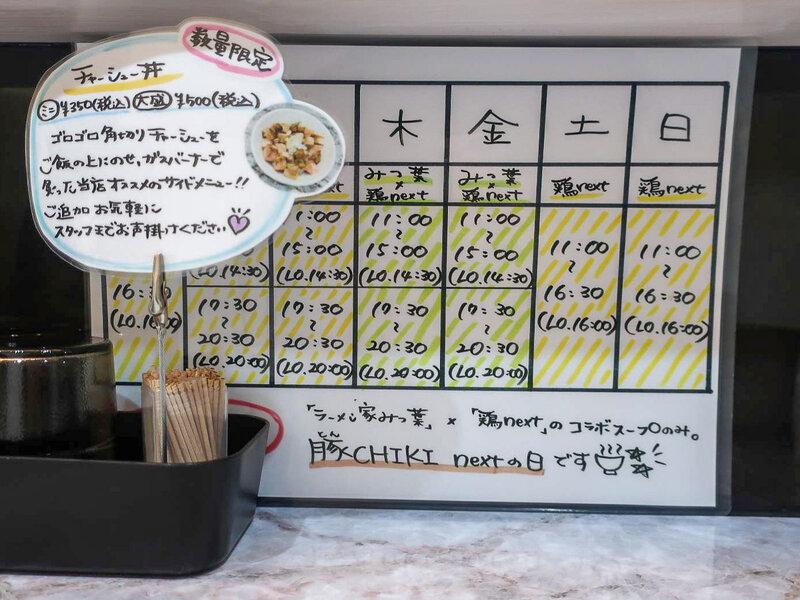 数量限定
チャーシュー丼
ミニ ¥350(税込) 大盛 ¥500(税込)
ゴロゴロ角切りチャーシューを
ご飯の上にのせ、ガスバーナーで
炙った当店オススメのサイドメニュー!!
ご追加お気軽に
スタッフまでお声掛けください
木 金 土 日
みつ葉 × 鶏next
みつ葉 × 鶏next
鶏next
鶏next
11:00 〜 15:00 (LO.14:30)
11:00 〜 15:00 (LO.14:30)
11:00 〜 15:00 (LO.14:30)
11:00 〜 16:30 (LO.16:00)
11:00 〜 16:30 (LO.16:00)
17:30 〜 20:30 (LO.20:00)
17:30 〜 20:30 (LO.20:00)
17:30 〜 20:30 (LO.20:00)
17:30 〜 20:30 (LO.20:00)
「ラーメン家みつ葉」×「鶏next」のコラボスープのみ。
とん
豚CHIKI nextの日です